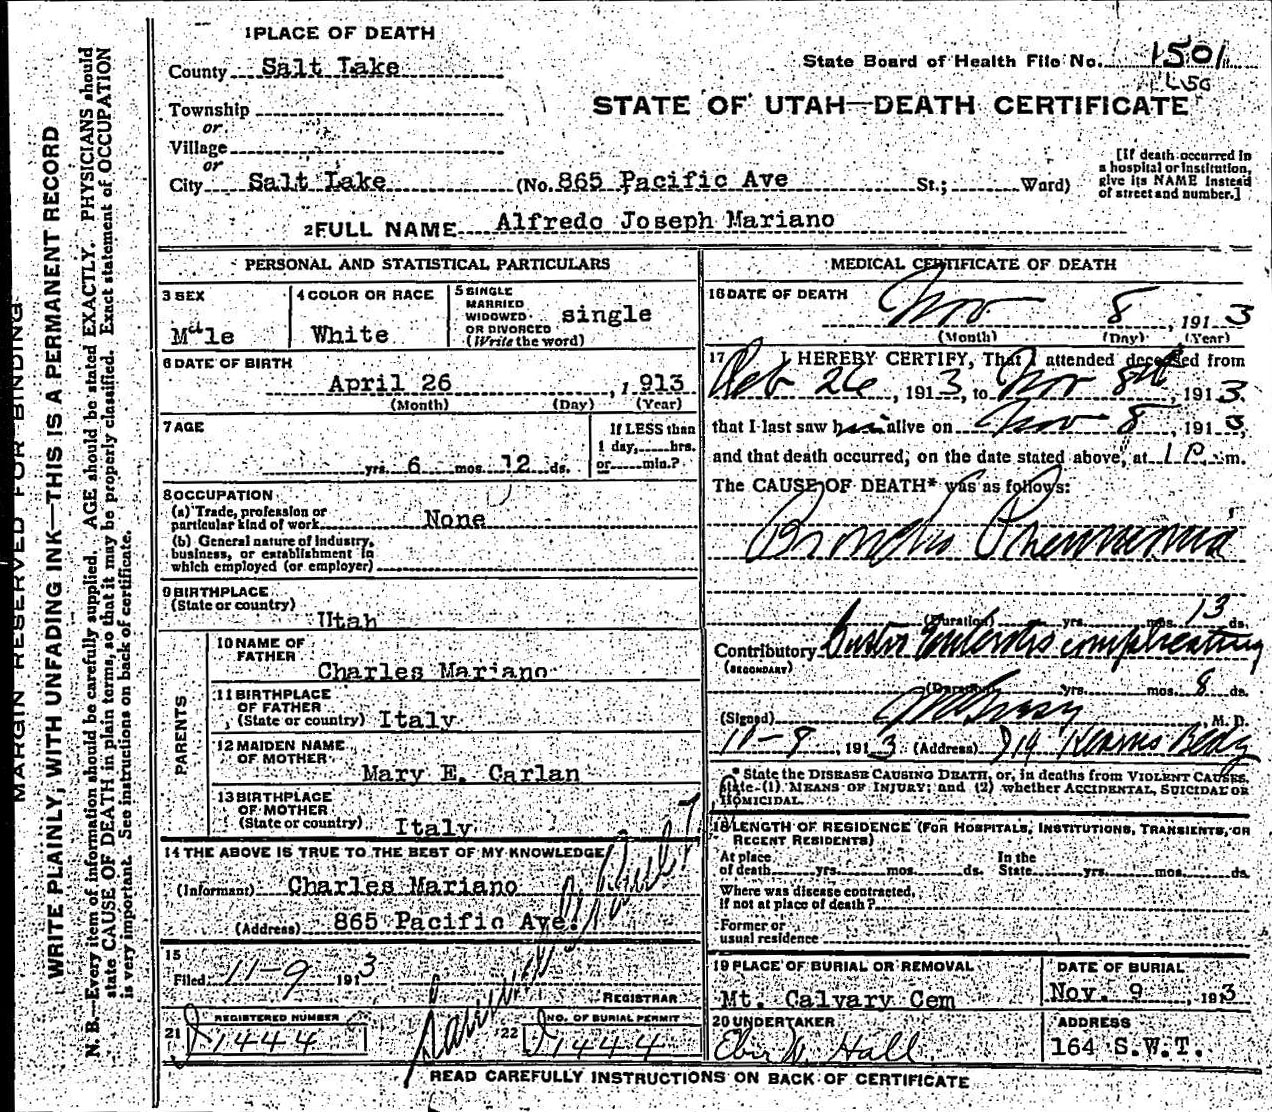 1 PLACE OF DEATH
County Salt Lake
State Board of Health File No. 1501
Township
STATE OF UTAH—DEATH CERTIFICATE
or
Village
or
City Salt Lake (No. 865 Pacific Ave St.; Ward)
[If death occurred in
a hospital or institution,
give its NAME instead
of street and number.]
2 FULL NAME Alfredo Joseph Mariano
PERSONAL AND STATISTICAL PARTICULARS
3 SEX
Male
4 COLOR OR RACE
White
5 SINGLE
MARRIED
WIDOWED
OR DIVORCED
(Write the word)
single
6 DATE OF BIRTH
April 26, 1913
(Month) (Day) (Year)
7 AGE
yrs. 6 mos. 12 ds.
If LESS than
1 day, hrs.
or min.?
8 OCCUPATION
(a) Trade, profession or
particular kind of work None
(b) General nature of industry,
business, or establishment in
which employed (or employer)
9 BIRTHPLACE
(State or country)
Utah
PARENTS
10 NAME OF
FATHER
Charles Mariano
11 BIRTHPLACE
OF FATHER
(State or country) Italy
12 MAIDEN NAME
OF MOTHER
Mary E. Carlan
13 BIRTHPLACE
OF MOTHER
(State or country) Italy
14 THE ABOVE IS TRUE TO THE BEST OF MY KNOWLEDGE
(Informant) Charles Mariano
(Address) 865 Pacific Ave.
15
Filed 11-9 1913
REGISTRAR
21 REGISTERED NUMBER
1444
22 NO. OF BURIAL PERMIT
1444
MEDICAL CERTIFICATE OF DEATH
16 DATE OF DEATH
Nov 8, 1913
(Month) (Day) (Year)
17 I HEREBY CERTIFY, That I attended deceased from
26, 1913, to Nov 8th, 1913.
that I last saw him alive on Nov 8, 1913,
and that death occurred, on the date stated above, at 1 P. m.
The CAUSE OF DEATH* was as follows:
Broncho Pneumonia
(Duration) yrs. mos. 13 ds.
Contributory Gastro Enterotis complicating
(SECONDARY)
(Duration) yrs. mos. 8 ds.
(Signed) M. D.
11-9, 1913 (Address) 714 Kearns Bldg
* State the DISEASE CAUSING DEATH, or, in deaths from VIOLENT CAUSES,
state (1) MEANS OF INJURY; and (2) whether ACCIDENTAL, SUICIDAL OR
HOMICIDAL.
18 LENGTH OF RESIDENCE (FOR HOSPITALS, INSTITUTIONS, TRANSIENTS, OR
RECENT RESIDENTS)
At place
of death yrs. mos. ds.
In the
State yrs. mos. ds.
Where was disease contracted,
if not at place of death?
Former or
usual residence
19 PLACE OF BURIAL OR REMOVAL
Mt. Calvary Cem
DATE OF BURIAL
Nov. 9, 1913
20 UNDERTAKER
Eber W. Hall
ADDRESS
164 S.W.T.
READ CAREFULLY INSTRUCTIONS ON BACK OF CERTIFICATE
MARGIN RESERVED FOR BINDING
WRITE PLAINLY, WITH UNFADING INK—THIS IS A PERMANENT RECORD
N. B.—Every item of information should be carefully supplied. AGE should be stated EXACTLY. PHYSICIANS should
state CAUSE OF DEATH in plain terms, so that it may be properly classified. Exact statement of OCCUPATION
is very important. See instructions on back of certificate.